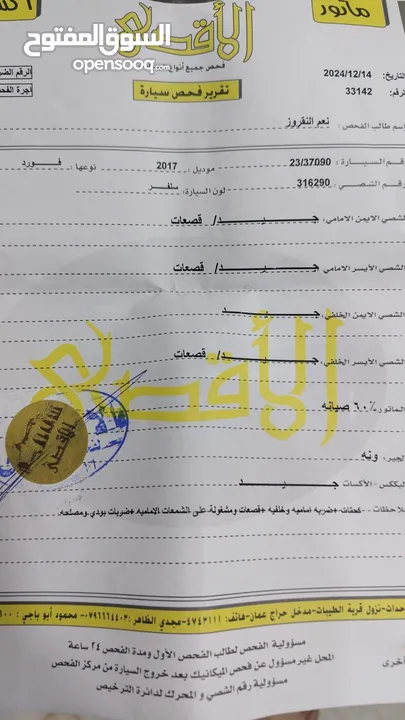 ماتور
الأقصى
السوق المفتوح
opensooq.com
فحص جميع أنواع
تقرير فحص سيارة
التاريخ: 2024/12/14
الرقم: 33142
أجرة الفحص
اسم طالب الفحص: نعم النقروز
رقم السيارة: 23/37090 موديل: 2017 نوعها: فورد
رقم الشصي: 316290 لون السيارة: سلفر
الشصي الأيمن الامامي: جيد/ قصعات
الشصي الأيسر الامامي: جيد/ قصعات
الشصي الأيمن الخلفي: جيد
الشصي الأيسر الخلفي: جيد/ قصعات
الأقصى
الماتور: ٦٠٪ صيانه
الجير: ونه
البكس - الأكسات: جيد
ملاحظات: كحتات+ضربه اماميه وخلفيه+قصعات ومشغولة على الشمعات الاماميه+ضربات بودي.ومصلحه.
نزول قرية الطيبات-مدخل حراج عمان-هاتف: ٤٧٤٣١١١-مجدي الظاهر: ٠٧٩١١٦٤٤٠٣- محمود أبو ياجي:
مسؤولية الفحص لطالب الفحص الأول ومدة الفحص ٢٤ ساعة
المحل غير مسؤول عن فحص الميكانيك بعد خروج السيارة من مركز الفحص
مسؤولية رقم الشصي و المحرك لدائرة الترخيص
أخرى